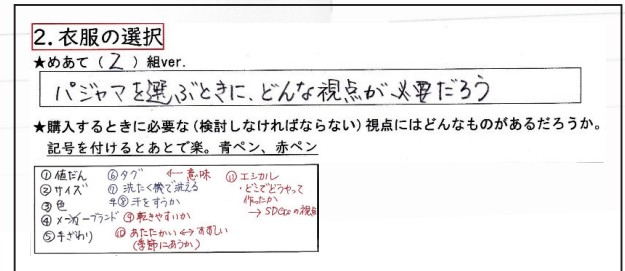 2. 衣服の選択
★めあて ( 2 ) 組ver.
パジャマを選ぶときに、どんな視点が必要だろう
★購入するときに必要な(検討しなければならない)視点にはどんなものがあるだろうか。
記号を付けるとあとで楽。青ペン、赤ペン
① 値だん
② サイズ
③ 色
④ メーカーブランド
⑤ 手ざわり
⑥ タグ ← 意味
⑦ 洗たく機で洗える
⑧ 汗をすうか
⑨ 乾きやすいか
⑩ あたたかい ↔ すずしい
(季節にあうか)
⑪ エシカル
・どこでどうやって
作ったか
→ SDGsの視点